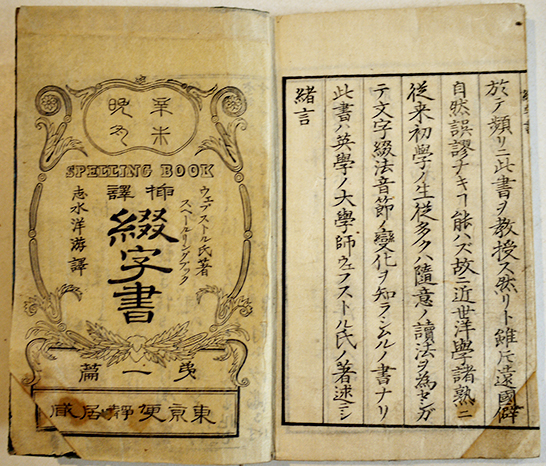 辛未
SPELLING BOOK
挿譯
ウェブストル氏著
スペールリングブック
綴字書
志水洋游譯
第一篇
東京 静居藏
緒言
此書ハ英學ノ大學師ウェブストル氏ノ著述ニシ
テ文字綴法音節ノ變化ヲ知ラシムルノ書ナリ
從来初學ノ生徒多クハ隨意ノ讀法ヲ為セシガ
自然誤謬ナキヿ能ハズ故ニ近世洋學諸熟ニ
於テ頻リニ此書ヲ教授ス然リト雖𪜈遠國僻